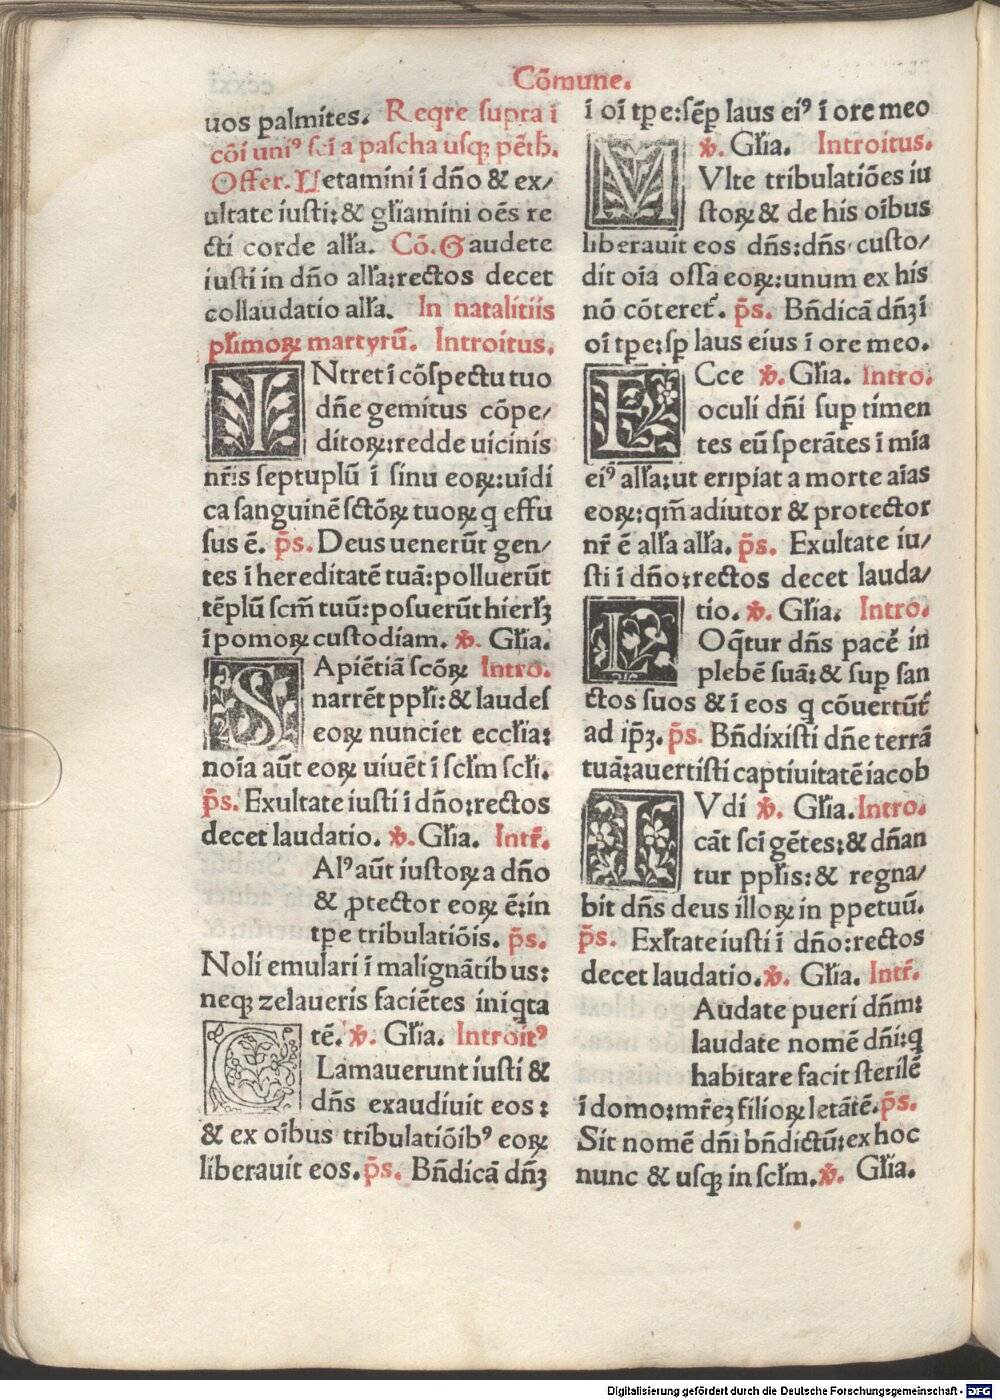 Cōmune.
uos palmites. Reqre supra ī
cōi uniꝰ scī a pascha usqꝫ pēth.
Offer. Letamini ī dño & ex/
ultate iusti: & głiamini oēs re
cti corde ałła. Cō. Gaudete
iusti in dño ałła: rectos decet
collaudatio ałła. In natalitiis
płimoꝝ martyrū. Introitus.
INtret ī cōspectu tuo
dñe gemitus cōpe/
ditoꝝ: redde uicinis
nr̄is septuplū ī sinu eoꝝ: uīdi
ca sanguinē sctōꝝ tuoꝝ q effu
sus ē. p̄s. Deus uenerūt gen/
tes ī hereditatē tuā: polluerūt
tēplū scm̄ tuū: posuerūt hierłꝫ
ī pomoꝝ custodiam. ꝟ. Głia.
SApiētiā scōꝝ Intro.
narrēt ppłi: & laudes
eoꝝ nunciet eccłia:
noīa aūt eoꝝ uiuēt ī scłm scłi.
p̄s. Exultate iusti ī dño: rectos
decet laudatio. ꝟ. Głia. Intr̄.
Alꝰ aūt iustoꝝ a dño
& ꝓtector eoꝝ ē: in
tpe tribulatiōis. p̄s.
Noli emulari ī malignātibus:
neqꝫ zelaueris faciētes iniqta
tē. ꝟ. Głia. Introitꝰ
CLamauerunt iusti &
dñs exaudiuit eos:
& ex oībus tribulatiōibꝰ eoꝝ
liberauit eos. p̄s. Bñdicā dñꝫ
ī oī tpe: sēꝑ laus eiꝰ ī ore meo
ꝟ. Głia. Introitus.
MVlte tribulatiōes iu
stoꝝ & de his oībus
liberauit eos dñs: dñs custo/
dit oīa ossa eoꝝ: unum ex his
nō cōteret᷑. p̄s. Bñdicā dñꝫ ī
oī tpe: sꝑ laus eius ī ore meo.
ECce ꝟ. Głia. Intro.
oculi dñi suꝑ timen
tes eū sperātes ī mīa
eiꝰ ałła: ut eripiat a morte aīas
eoꝝ: qm̄ adiutor & protector
nr̄ ē ałła ałła. p̄s. Exultate iu/
sti ī dño: rectos decet lauda/
tio. ꝟ. Głia. Intro.
LOq̄tur dñs pacē in
plebē suā: & suꝑ san
ctos suos & ī eos q cōuertūt᷑
ad ip̄ꝫ. p̄s. Bñdixisti dñe terrā
tuā: auertisti captiuitatē iacob
IVdi ꝟ. Głia. Intro.
cāt scī gētes: & dñan
tur ppłis: & regna/
bit dñs deus illoꝝ in ppetuū.
p̄s. Exłtate iusti ī dño: rectos
decet laudatio. ꝟ. Głia. Intr̄.
Audate pueri dñm:
laudate nomē dñi: q
habitare facit sterilē
ī domo: mr̄eꝫ filioꝝ letātē. p̄s.
Sit nomē dñi bñdictū: ex hoc
nunc & usqꝫ in scłm. ꝟ. Głia.
Digitalisierung gefördert durch die Deutsche Forschungsgemeinschaft - DFG